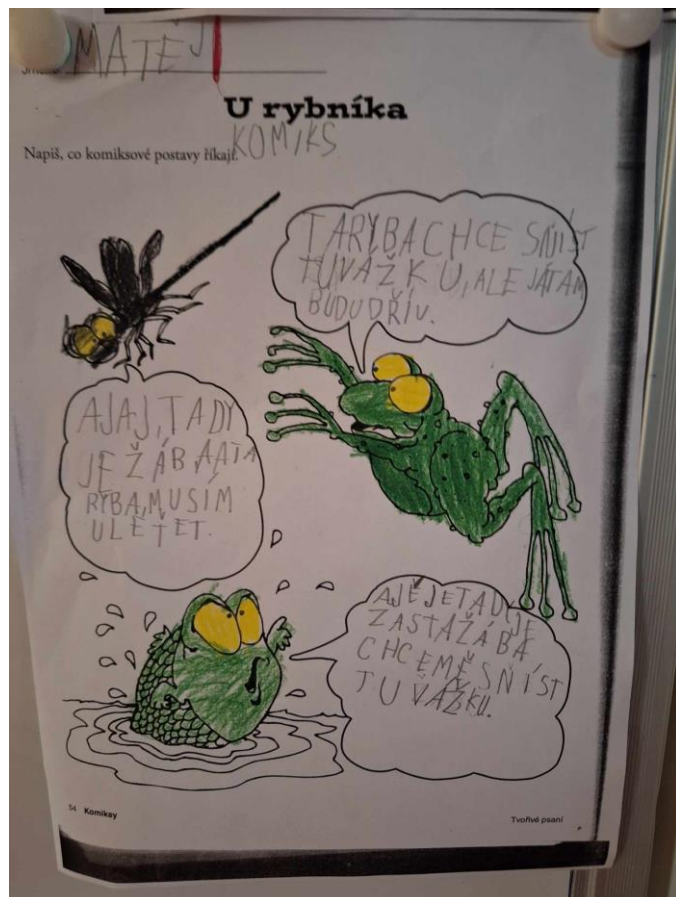 MATĚJ
U rybníka
KOMIKS
Napiš, co komiksové postavy říkají.
TA RYBA CHCE SŇÍST
TU VÁŽKU, ALE JÁ TAM
BUDU DŘÍV.
AJAJ, TADY
JE ŽÁBA A TA
RYBA, MUSÍM
ULĚTĚT.
AJĚJE TADY JE
ZAS TA ŽÁBA
CHCE MĚ SŇÍST
TU VÁŽKU.
54 Komiksy
Tvořivé psaní